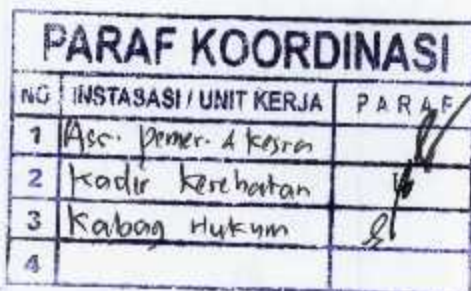 PARAF KOORDINASI
NO INSTASASI / UNIT KERJA PARAF
1 Ass. Pemer. & Kesra
2 Kadir Kesehatan
3 Kabag Hukum
4